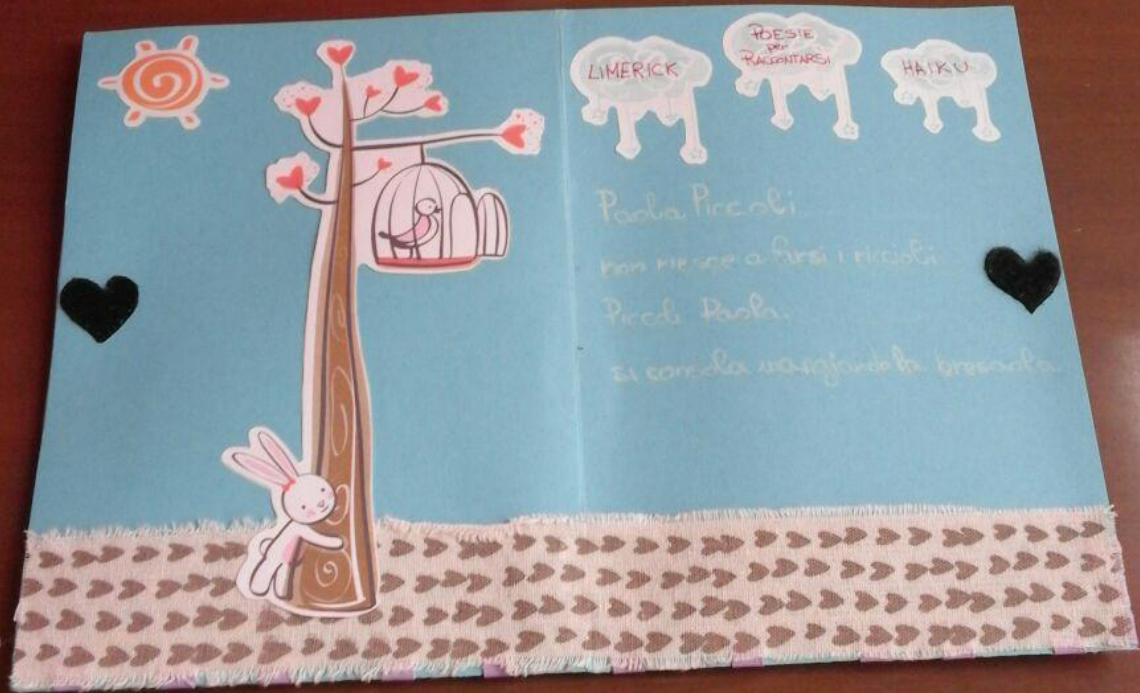 LIMERICK
POESIE
per
RACCONTARSI
HAIKU
Paola Piccoli
non riesce a farsi i riccioli
Piccoli Paola.
si consola mangiando la bresaola.